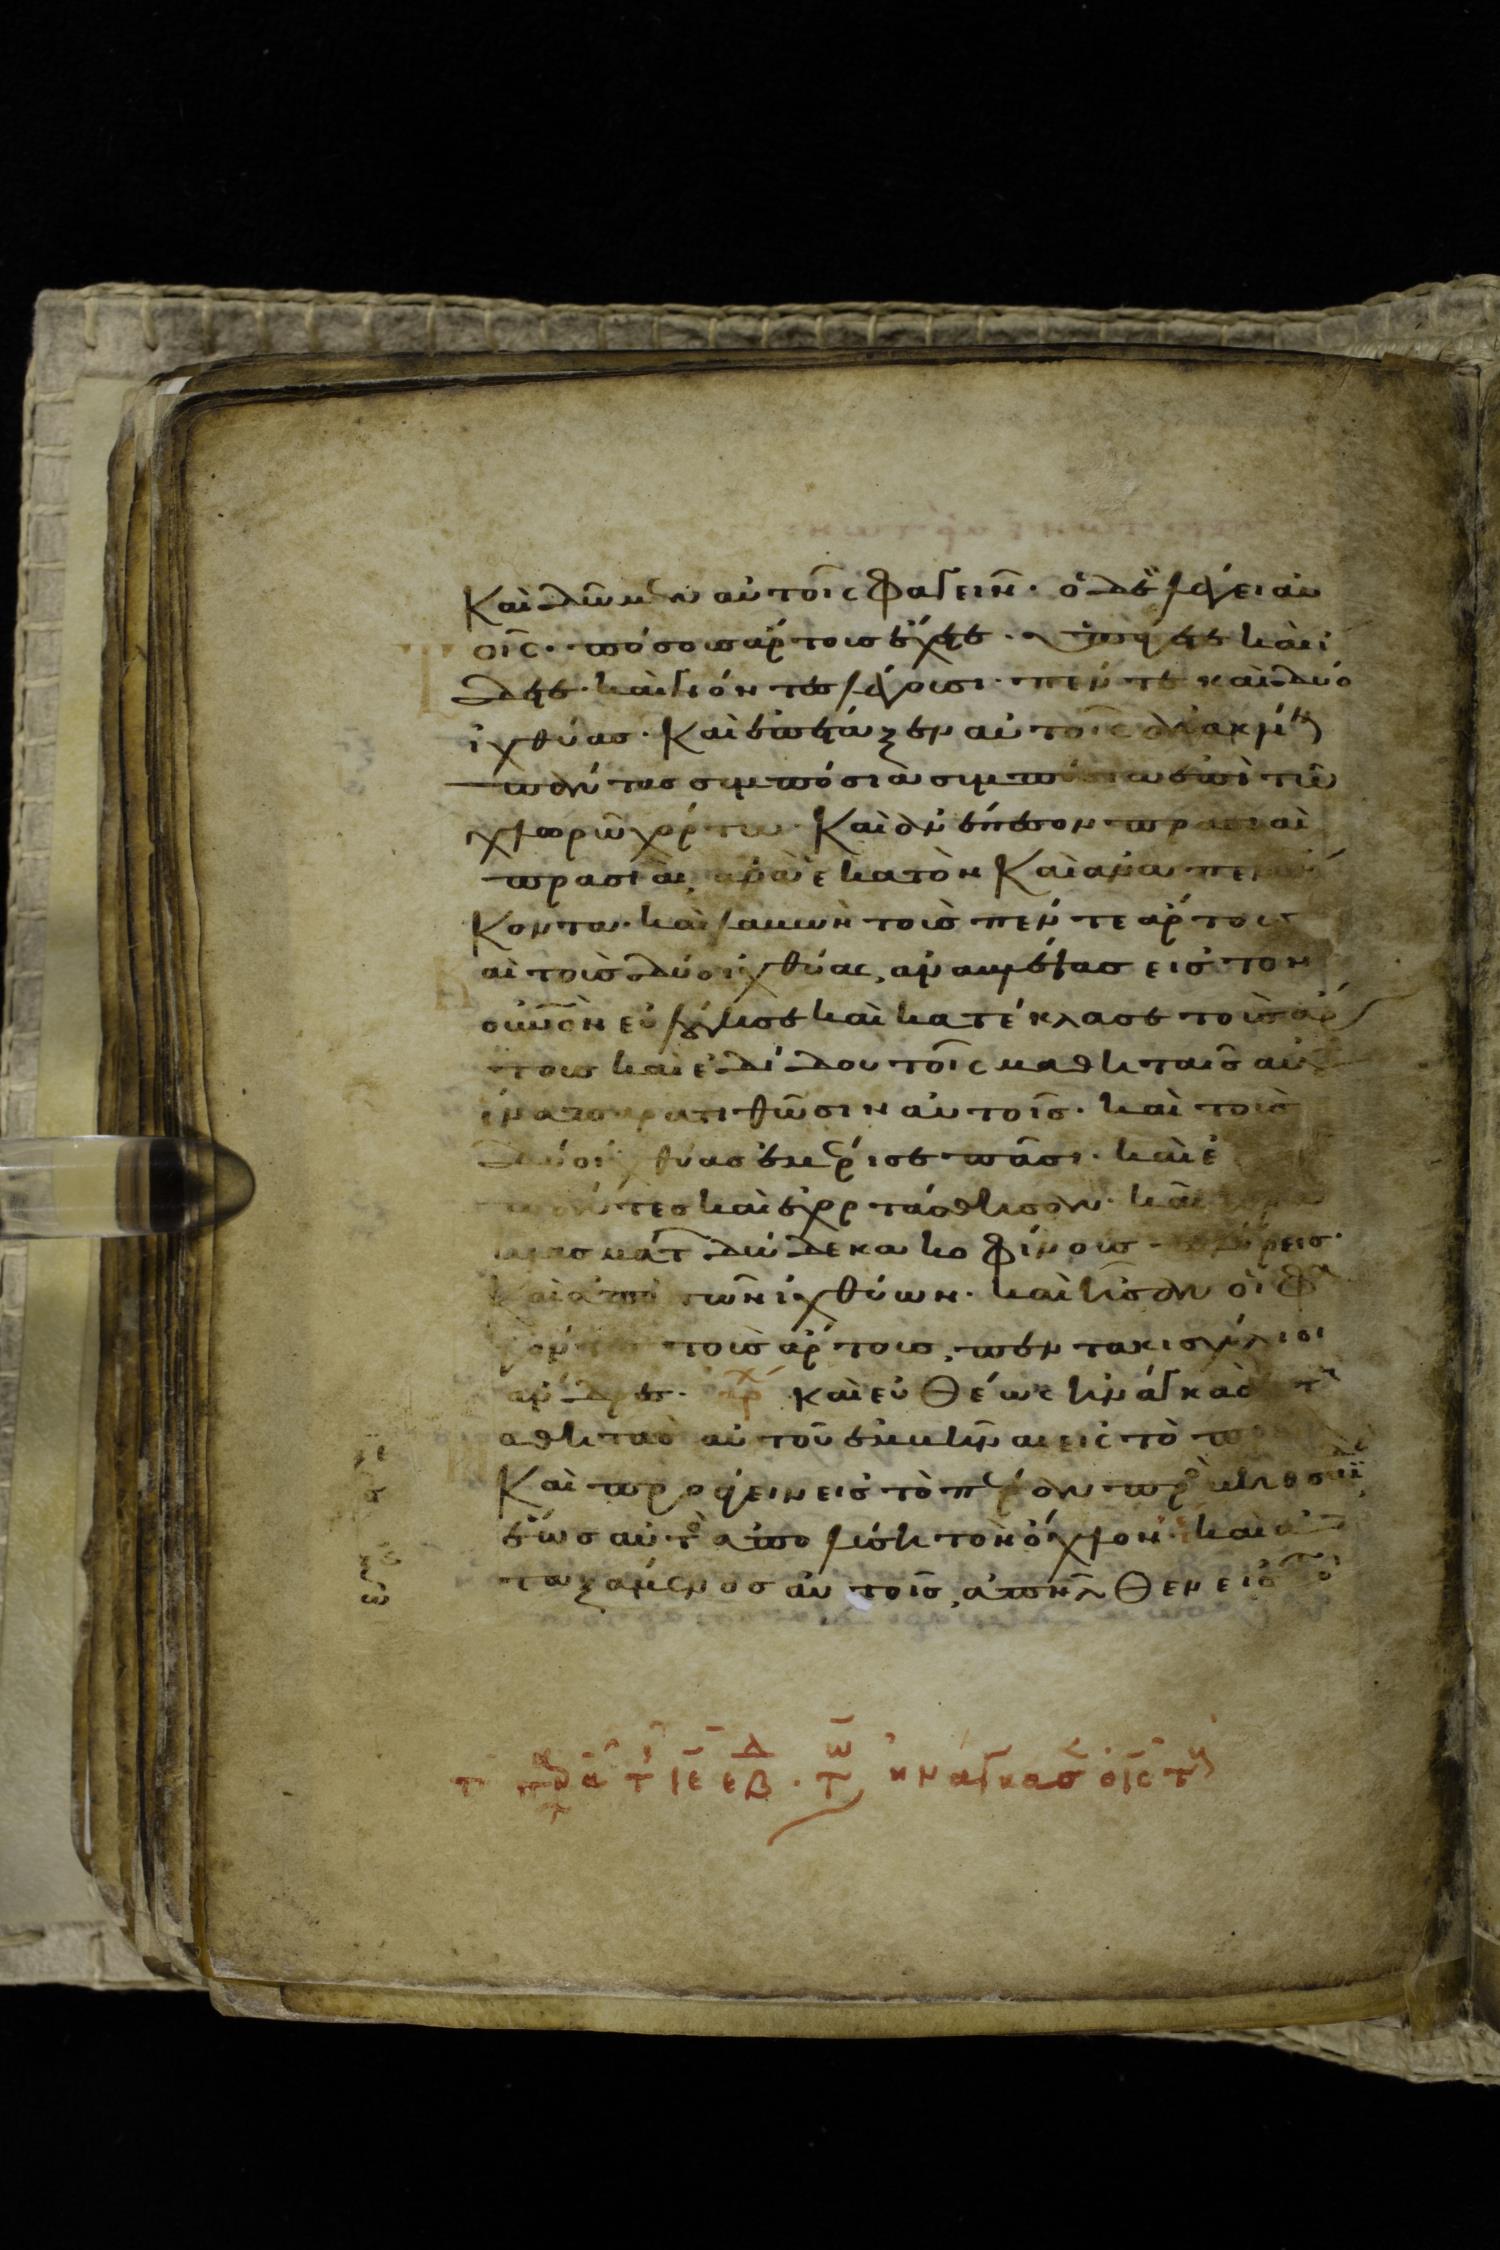 Καὶ δῶμεν αὐτοῖς φαγεῖν· ὁ δὲ λέγει αὐ
οῖς· πόσους ἄρτους ἔχετε· ὑπάγετε καὶ ἴ
δετε· καὶ γνόντες λέγουσι· πέντε καὶ δύο
ἰχθύας· Καὶ ἐπέταξεν αὐτοῖς ἀνακλῖ
πάντας συμπόσια συμπόσια ἐπὶ τῶ
χλωρῶ χόρτω· Καὶ ἀνέπεσον πρασιαὶ
πρασιαὶ, ἀνὰ ἑκατὸν Καὶ ἀνὰ πεντή
κοντα· καὶ λαβὼν τοὺς πέντε ἄρτους
αὶ τοὺς δύο ἰχθύας, ἀναβλέψας εἰς τὸν
οὐνὸν εὐλόγησε καὶ κατέκλασε τοὺς ἄρ
τους καὶ ἐδίδου τοῖς μαθηταῖς αὐτ
ἵνα παρατιθῶσιν αὐτοῖς· καὶ τοὺς
δύο ἰχθύας ἐμέρισε πᾶσι· καὶ ἔ
πάντες καὶ ἐχορτάσθησαν· καὶ
κλασμάτ δώδεκα κοφίνους πλήρεις·
Καὶ ἀπὸ τῶν ἰχθύων· καὶ ἦσαν οἱ φα
γόντες τοὺς ἄρτους, πεντακισχίλιοι
ἄνδρες· ἀρχ καὶ εὐθέως ἠνάγκασε τ
αθητὰς αὐτοῦ ἐμβῆναι εἰς τὸ π
Καὶ προάγειν εἰς τὸ πέραν πρὸ βηθσαϊ
ἕως αὐτὸ ἀπολύση τὸν ὄχλον· καὶ ἀπο
ταξάμενος αὐτοῖς, ἀπῆλθεν εἰς τὸ
ἠνάγκασ ὁ ις τ